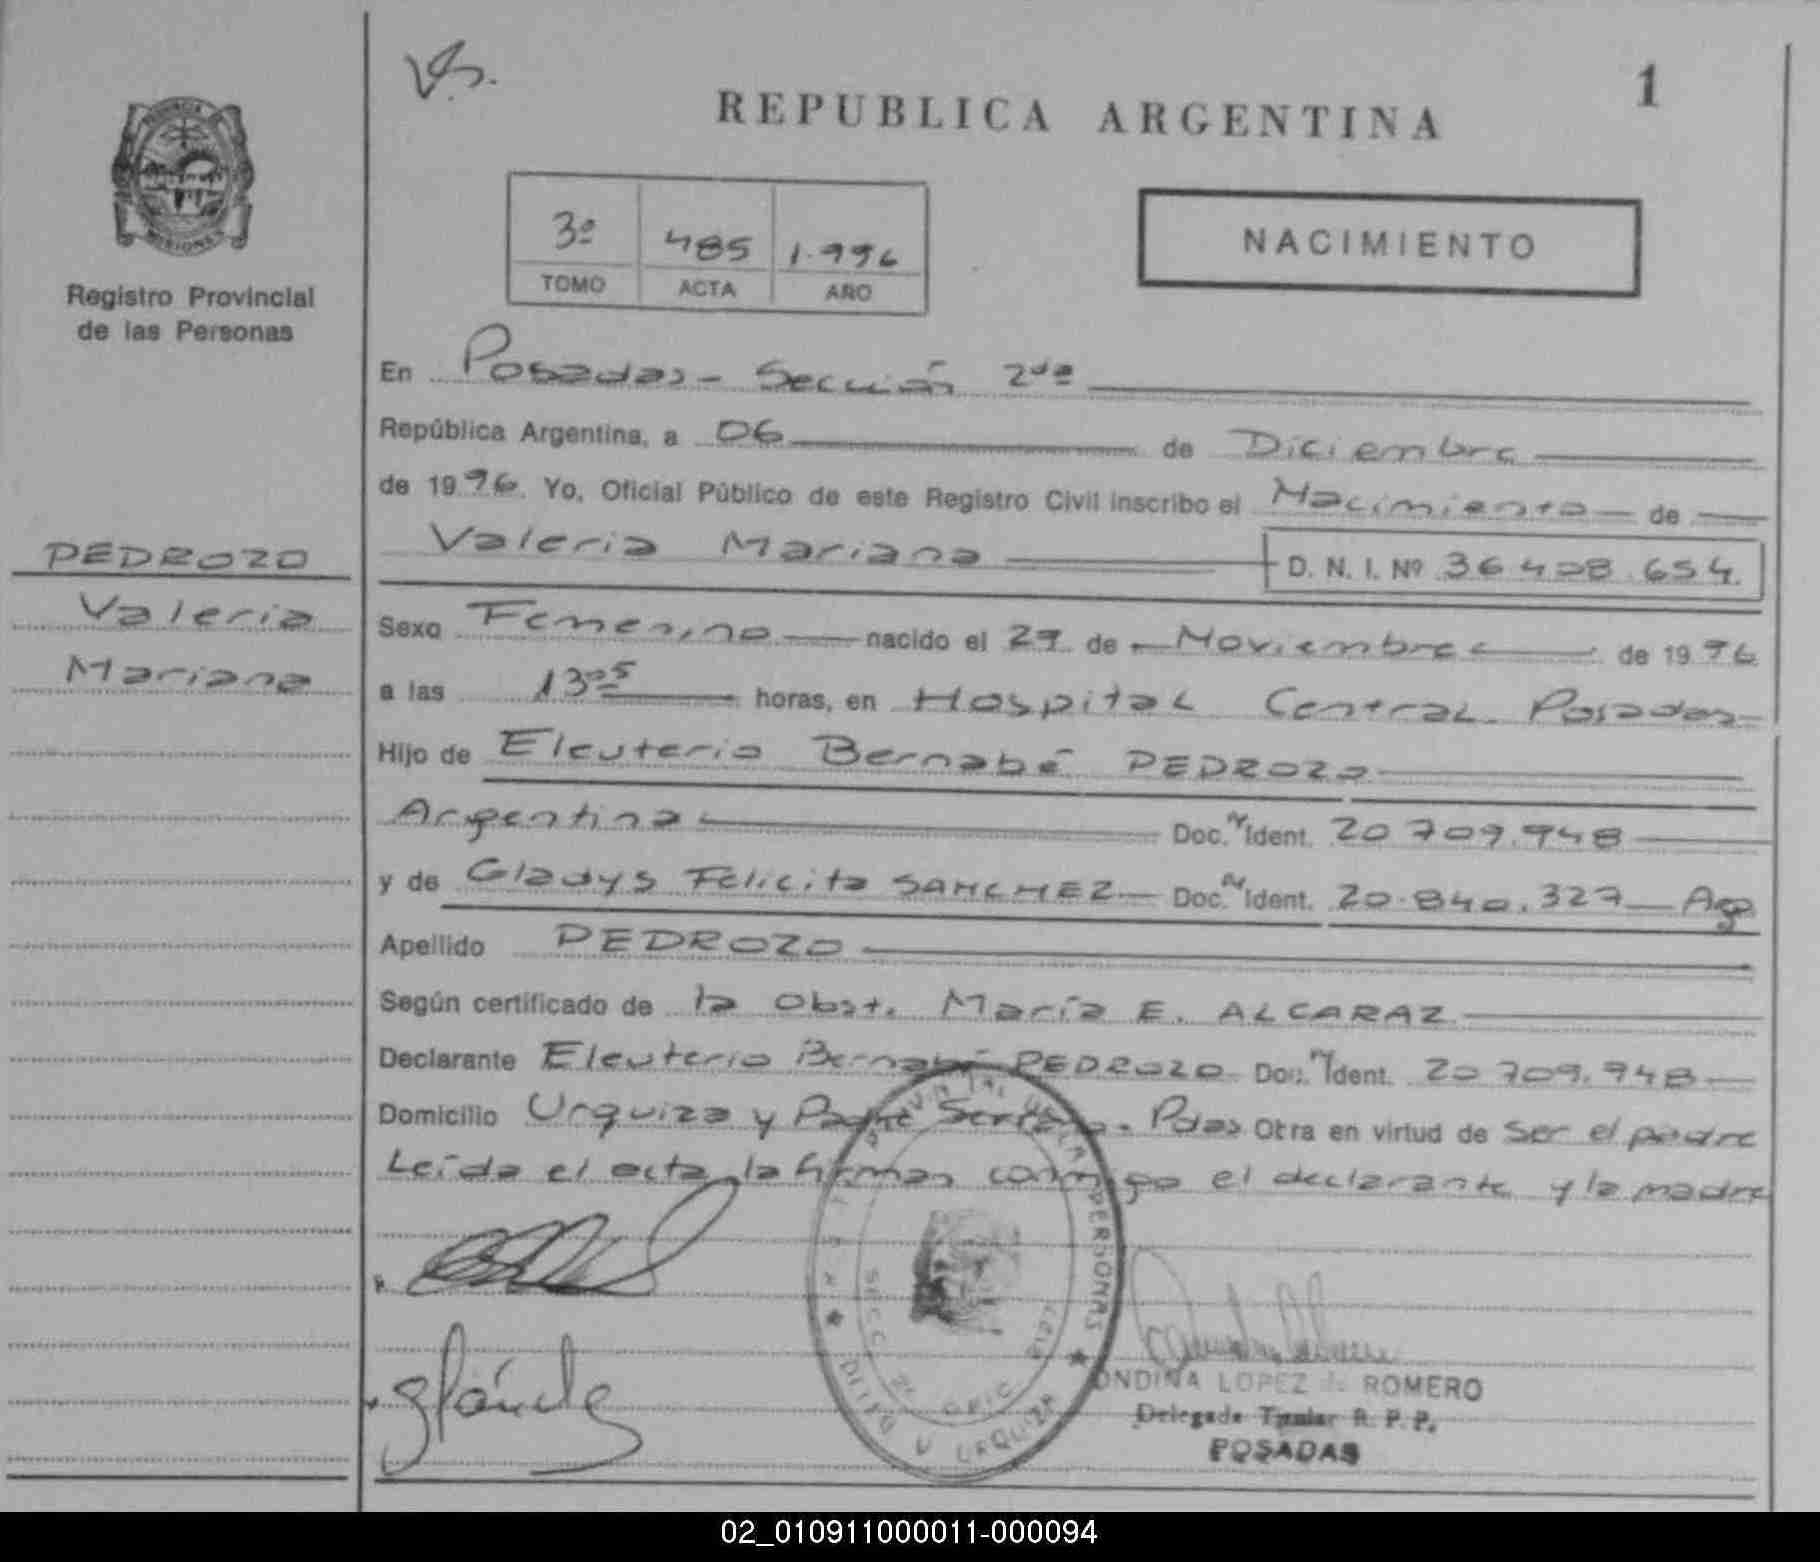 Vs.
REPUBLICA ARGENTINA
1
3º 485 1.996
TOMO ACTA AÑO
NACIMIENTO
Registro Provincial
de las Personas
En Posadas - Sección 2da
República Argentina, a 06 de Diciembre
de 1996. Yo, Oficial Público de este Registro Civil inscribo el Nacimiento de
Valeria Mariana D. N. I. Nº 36.408.654.
PEDROZO
Valeria
Mariana
Sexo Femenino nacido el 29 de Noviembre de 1996
a las 13:05 horas, en Hospital Central. Posadas
Hijo de Eleuterio Bernabé PEDROZO
Argentina Doc. N Ident. 20.709.948
y de Gladys Felicita SANCHEZ Doc. N Ident. 20.840.327 Arg.
Apellido PEDROZO
Según certificado de la Obst. María E. ALCARAZ
Declarante Eleuterio Bernabé PEDROZO Doc. N Ident. 20.709.948
Domicilio Urquiza y Padre Serrano. Pdas Otra en virtud de ser el padre
Leída el acta, la firman conmigo el declarante y la madre
PERSONAS
SECC. 2º OFIC.
DELEG. V. URQUIZA
ONDINA LOPEZ de ROMERO
Delegada Titular R. P. P.
POSADAS
02_010911000011-000094